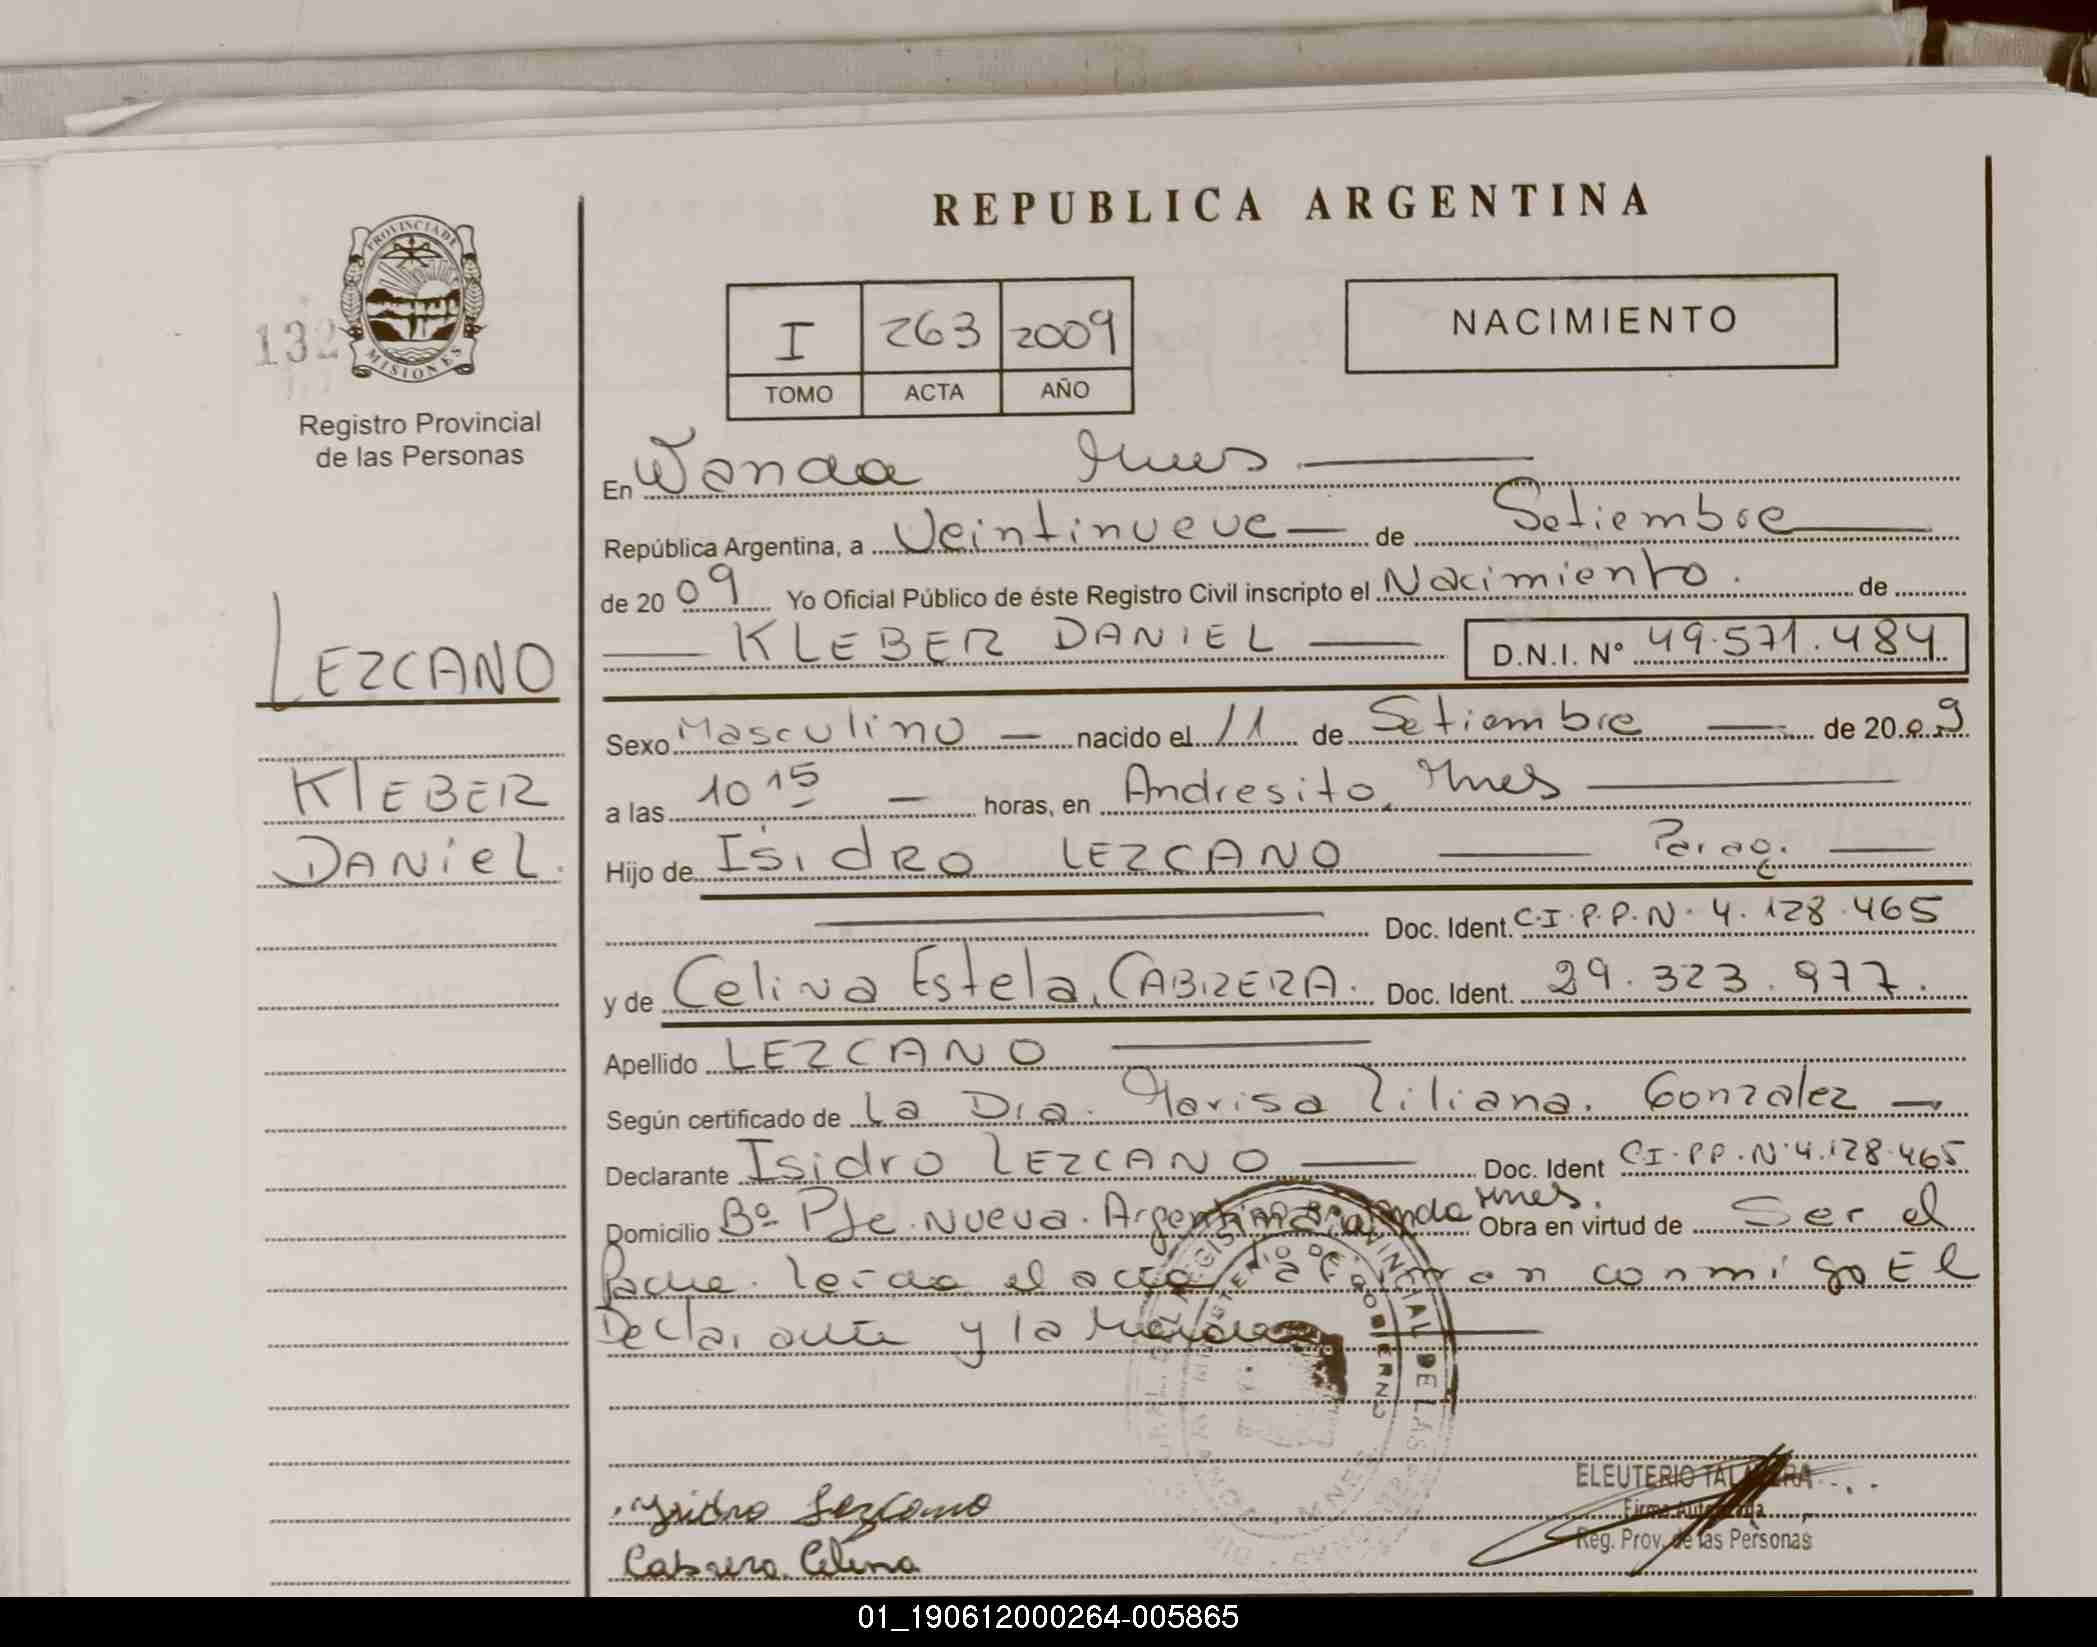 REPUBLICA ARGENTINA
PROVINCIA DE
MISIONES
132
Registro Provincial
de las Personas
I 263 2009
TOMO ACTA AÑO
NACIMIENTO
En Wanda Mnes
República Argentina, a Veintinueve de Setiembre
de 2009 Yo Oficial Público de éste Registro Civil inscripto el Nacimiento. de
KLEBER DANIEL D.N.I. Nº 49.571.484
LEZCANO
KLEBER
DANIEL.
Sexo Masculino nacido el 11 de Setiembre de 2009
a las 10 15 horas, en Andresito, Mnes
Hijo de Isidro LEZCANO Parag.
Doc. Ident. C.I.P.P.N. 4.128.465
y de Celina Estela, CABRERA. Doc. Ident. 29.323.977.
Apellido LEZCANO
Según certificado de La Dra. Marisa Liliana. Gonzalez
Declarante Isidro LEZCANO Doc. Ident CI.PP.N.4.128.465
Domicilio Bº Pje. Nueva. Argentina Wanda Mnes. Obra en virtud de Ser el
Padre. Leída el acta conmigo El
Declarante y la Madre
Ysidro Lezcano
Cabrera Celina
ELEUTERIO TALAVERA
Firma Autorizada
Reg. Prov. de las Personas
01_190612000264-005865